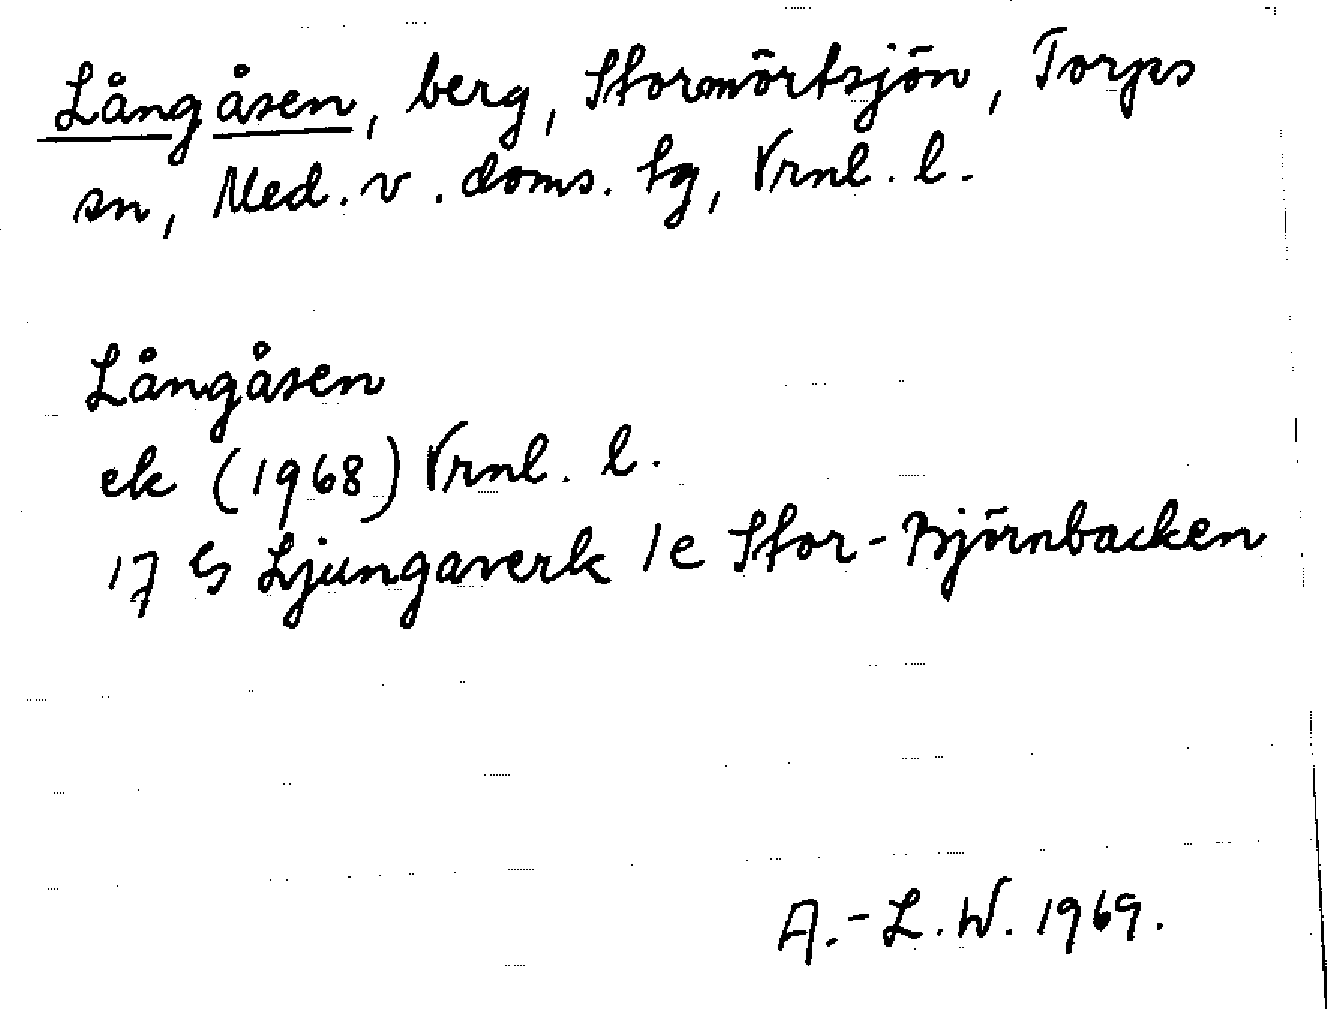 Långåsen, berg, Stormörtsjön, Torps
sn, Med. v. doms. tg, Vrnl. l.
Långåsen
ek (1968) Vrnl. l.
17 G Ljungaverk 1e Stor-Björnbacken
A.-L.W. 1969.